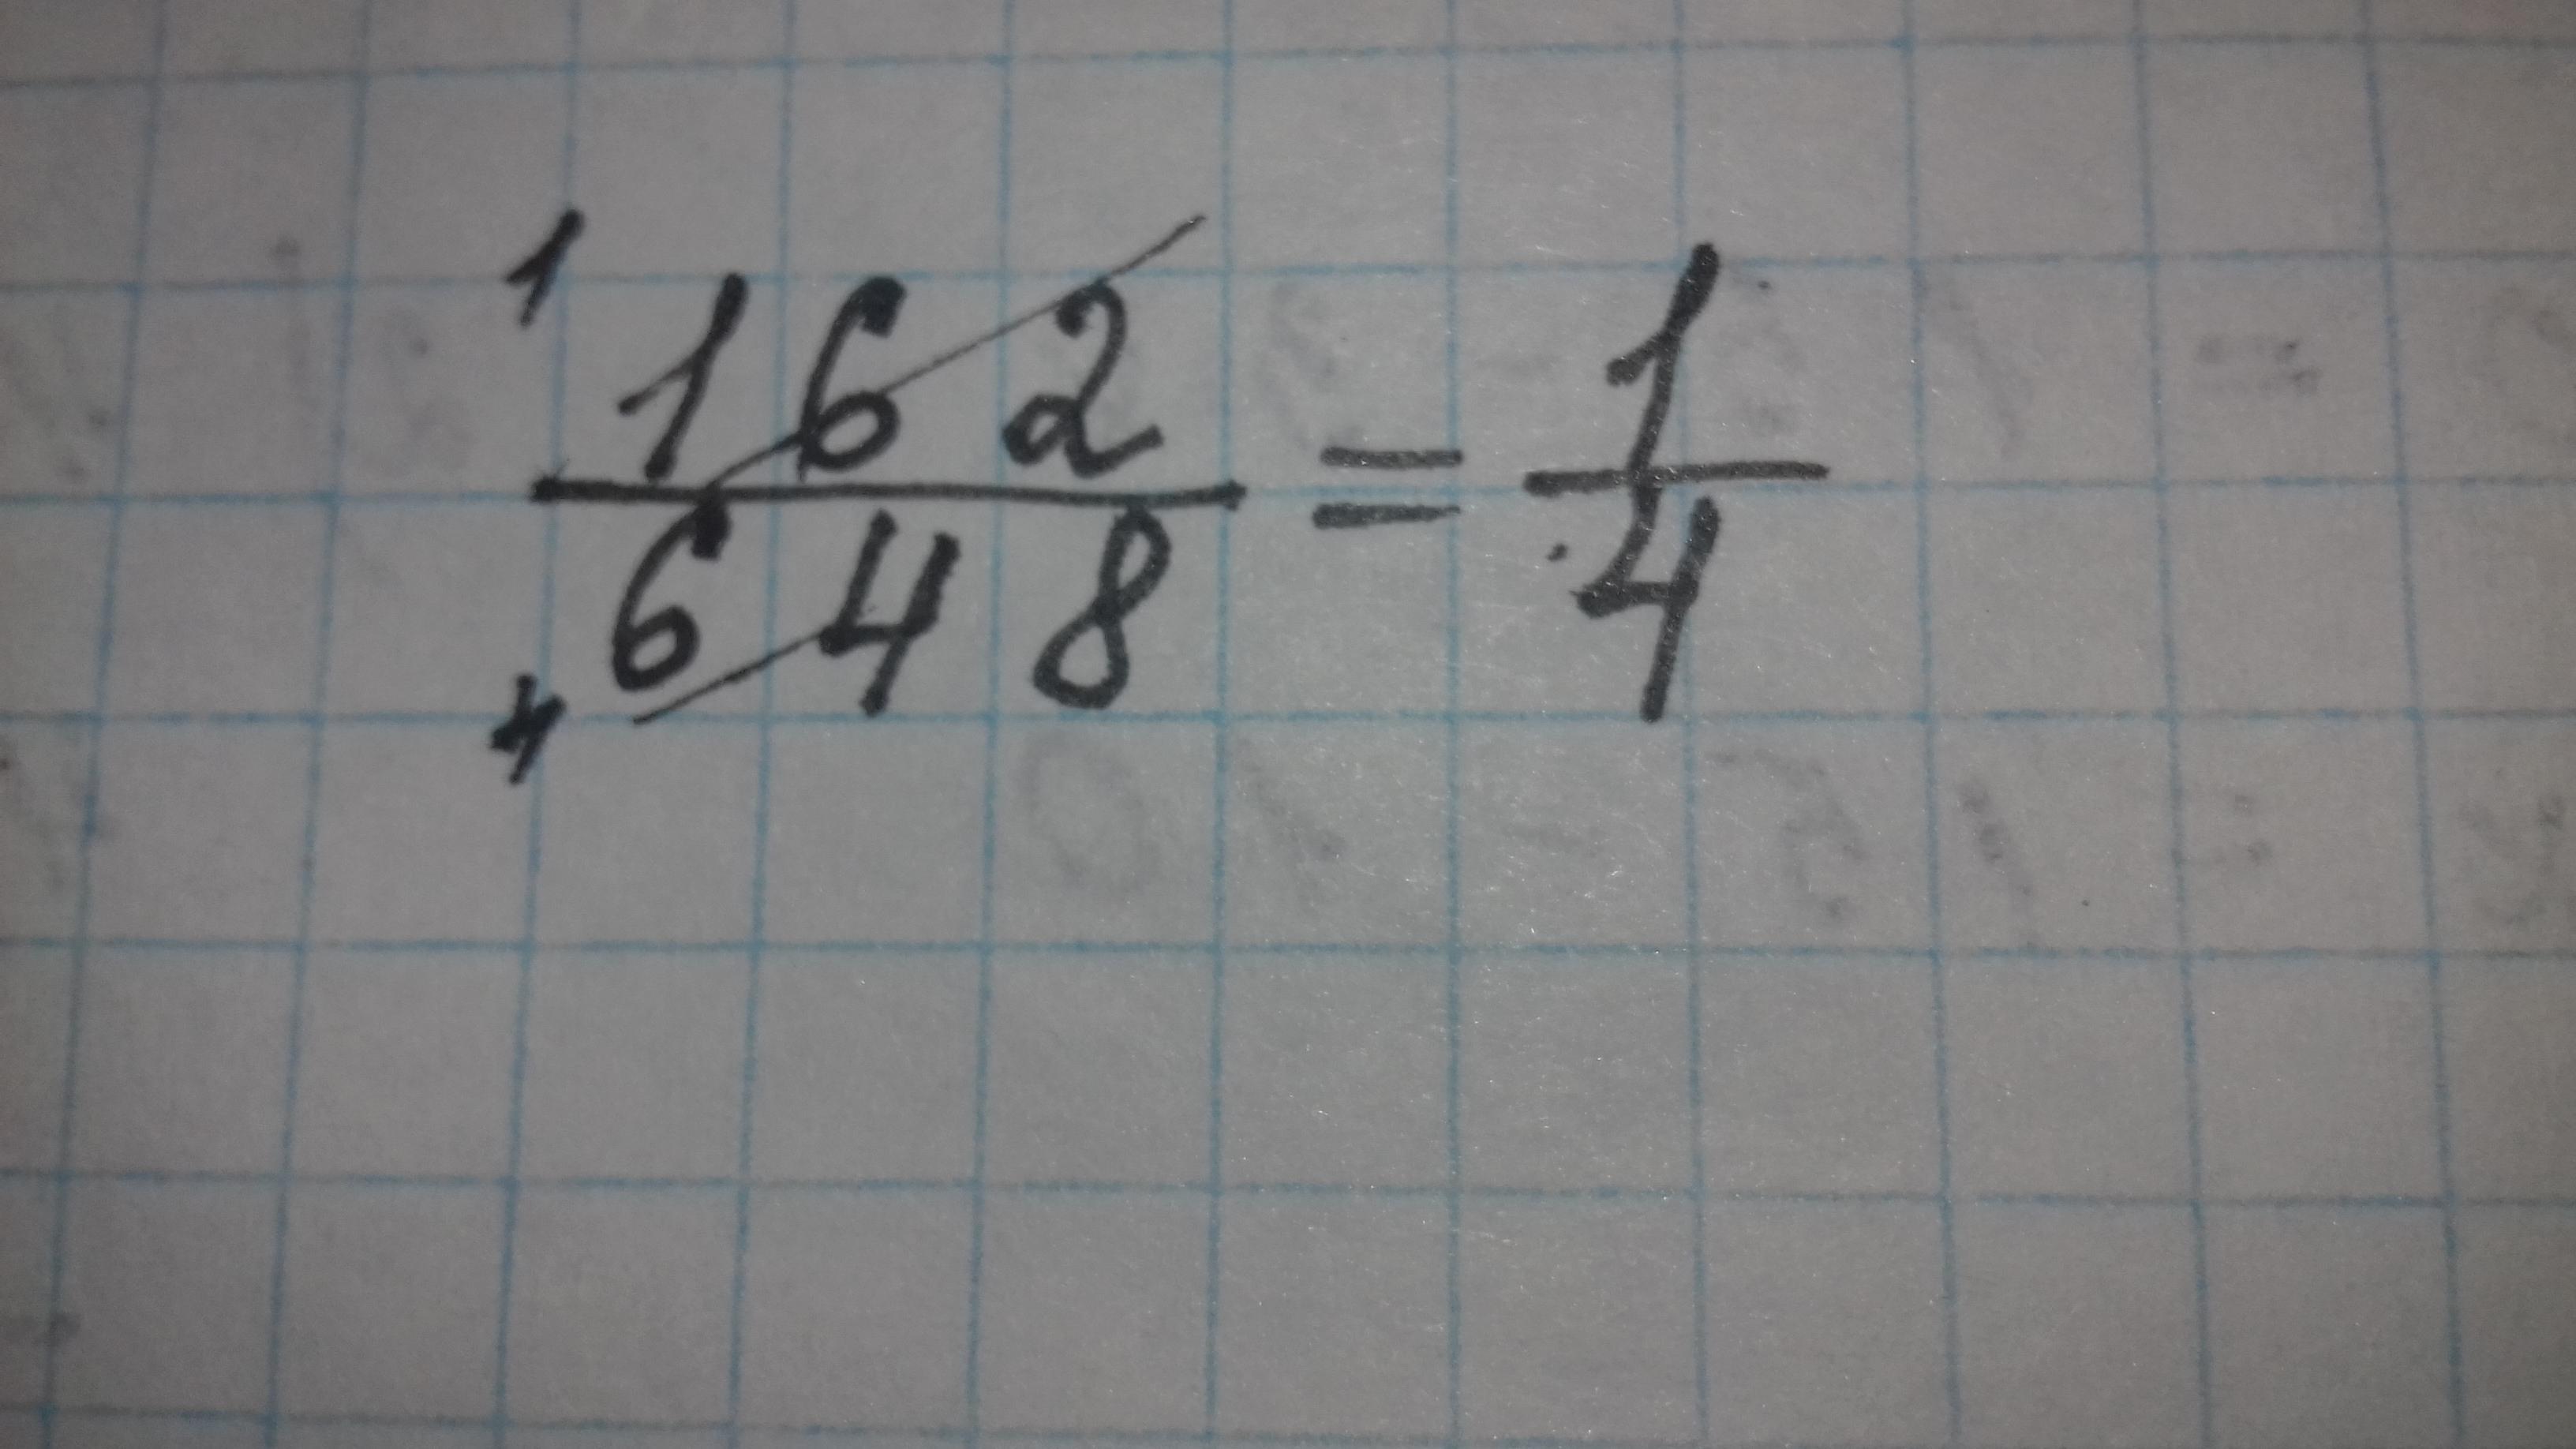 1
162
648
4
=
1
4